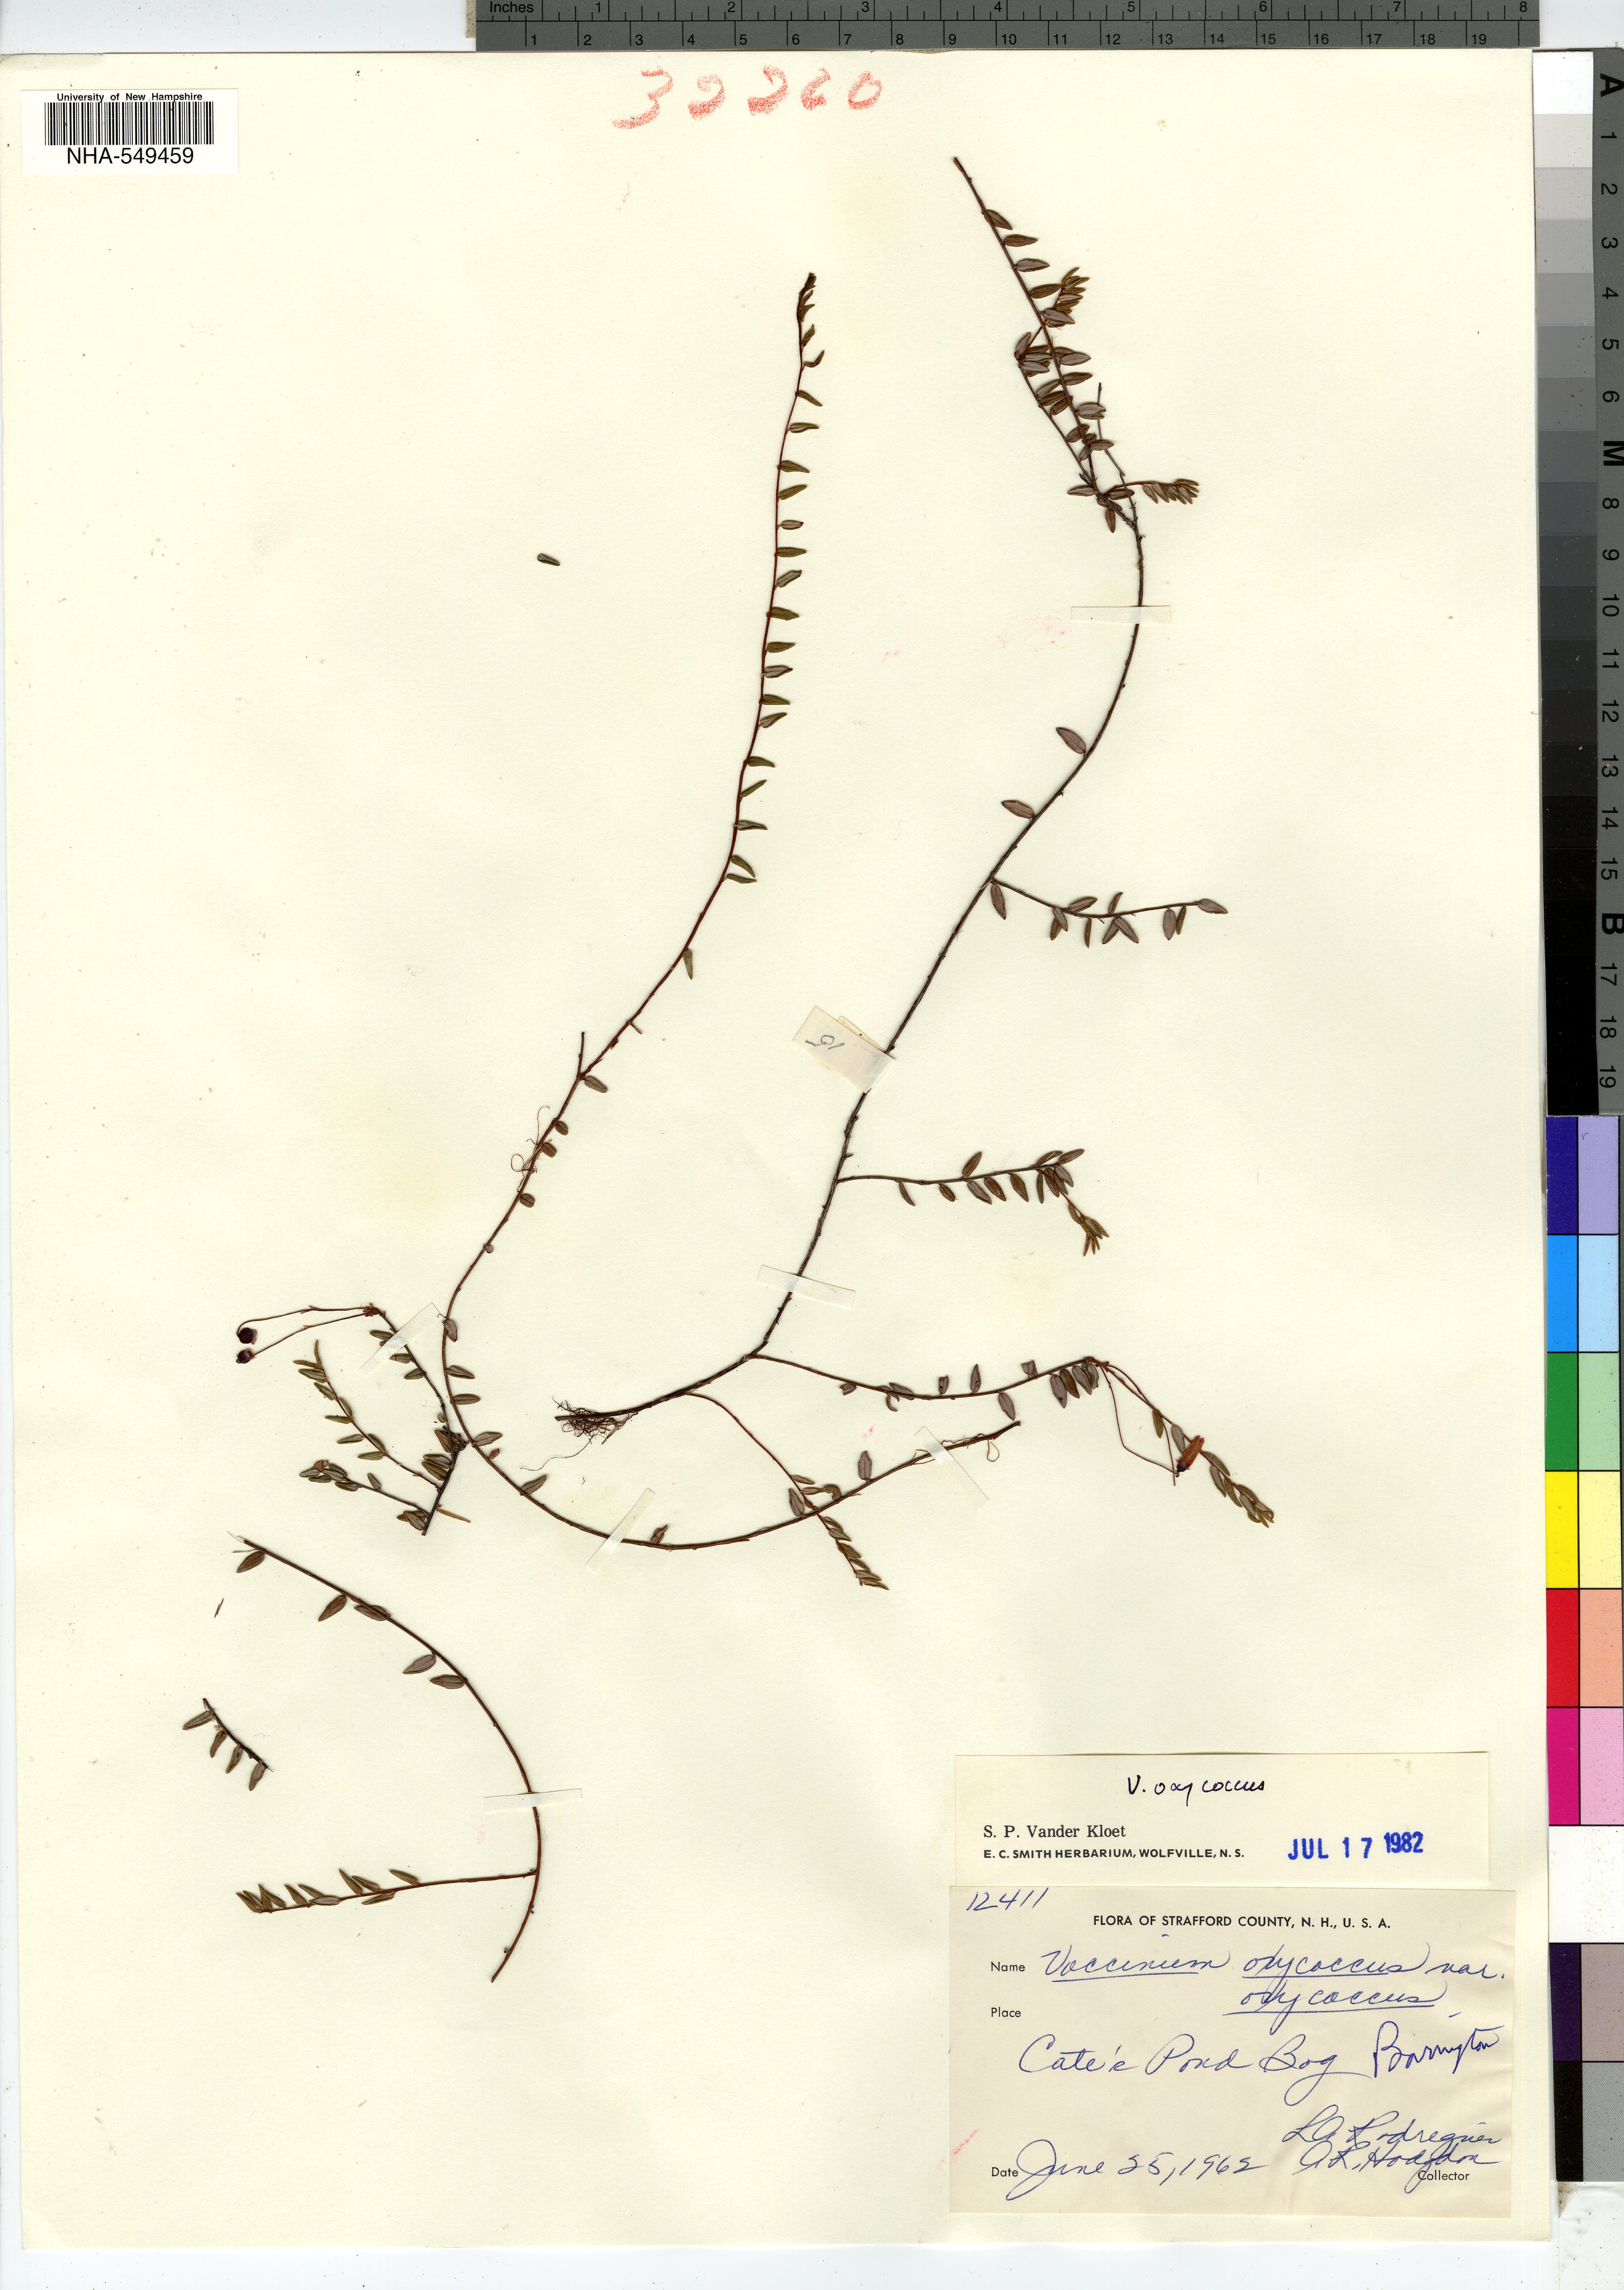 Inches 1 2 3 4 5 6 7 8
1 2 3 4 5 6 7 8 9 10 11 12 13 14 15 16 17 18 19
32260
University of New Hampshire
NHA-549459
A 1 2 3 4 5 6 M 8 9 10 11 12 13 14 15 B 17 18 19
V. oxycoccus
S. P. Vander Kloet
E. C. SMITH HERBARIUM, WOLFVILLE, N. S.
JUL 17 1982
12411
FLORA OF STRAFFORD COUNTY, N. H., U. S. A.
Name Vaccinium oxycoccus var.
oxycoccus
Place
Cate's Pond Bog Barrington
A.R. Hodgdon
Date June 25, 1962
Collector